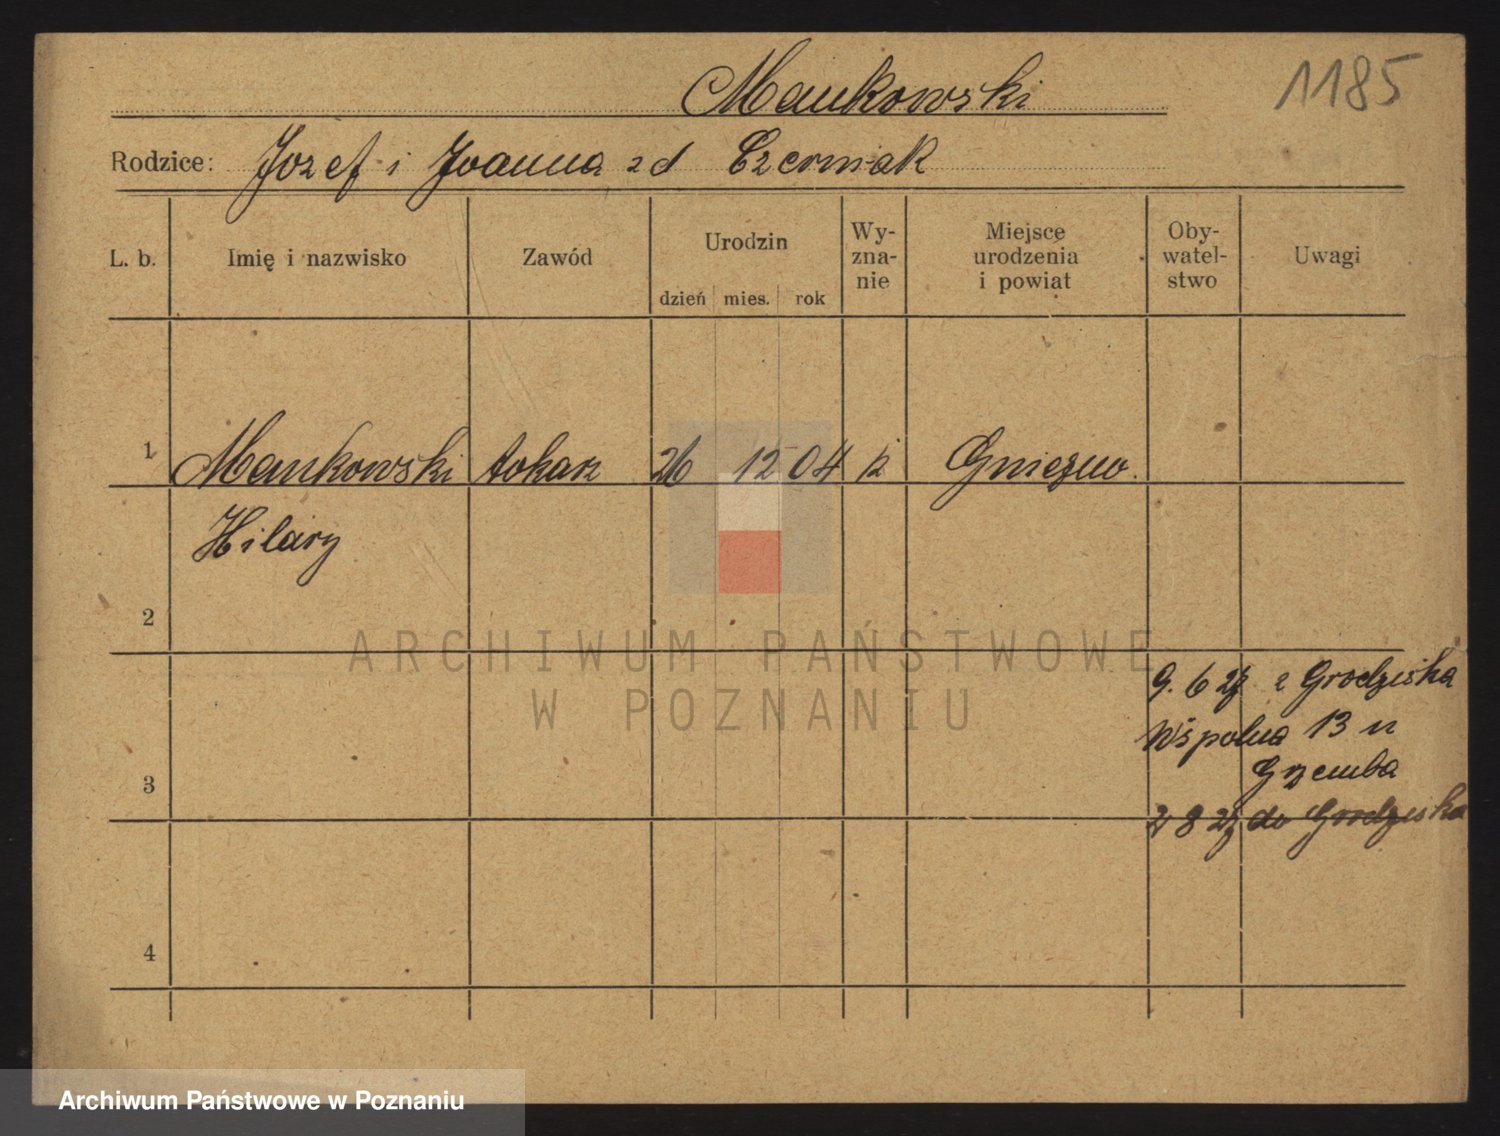 Mankowski
1185
Rodzice: Jozef i Joanna zd Czerniak
L. b. Imię i nazwisko Zawód Urodzin dzień mies. rok Wy-zna-nie Miejsce urodzenia i powiat Oby-watel-stwo Uwagi
1 Mankowski tokarz 26 12 04 k Gniezno.
Hilary
2
ARCHIWUM PAŃSTWOWE
W POZNANIU
9. 6 27 z Grodziska
Wspolna 13 u
3 Grzemba
2 8 27 do Grodziska
4
Archiwum Państwowe w Poznaniu